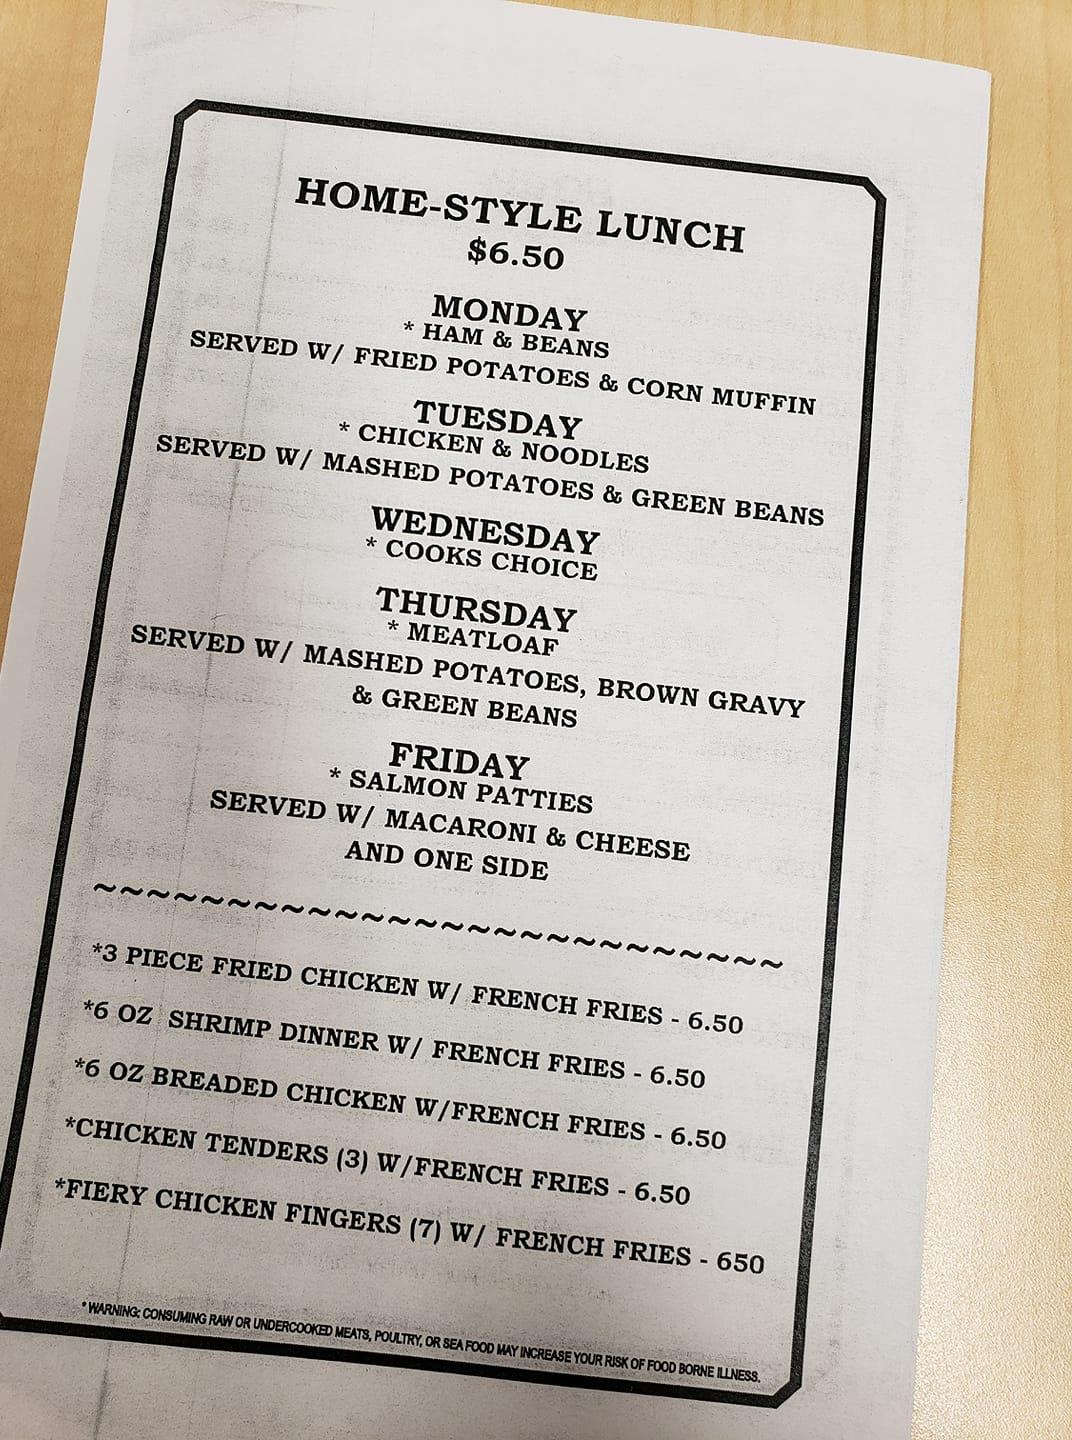 HOME-STYLE LUNCH
$6.50
MONDAY
* HAM & BEANS
SERVED W/ FRIED POTATOES & CORN MUFFIN
TUESDAY
* CHICKEN & NOODLES
SERVED W/ MASHED POTATOES & GREEN BEANS
WEDNESDAY
* COOKS CHOICE
THURSDAY
* MEATLOAF
SERVED W/ MASHED POTATOES, BROWN GRAVY
& GREEN BEANS
FRIDAY
* SALMON PATTIES
SERVED W/ MACARONI & CHEESE
AND ONE SIDE
~~~~~~~~~~~~~~~~~~~~~~~~~~
*3 PIECE FRIED CHICKEN W/ FRENCH FRIES - 6.50
*6 OZ SHRIMP DINNER W/ FRENCH FRIES - 6.50
*6 OZ BREADED CHICKEN W/FRENCH FRIES - 6.50
*CHICKEN TENDERS (3) W/FRENCH FRIES - 6.50
*FIERY CHICKEN FINGERS (7) W/ FRENCH FRIES - 650
* WARNING: CONSUMING RAW OR UNDERCOOKED MEATS, POULTRY, OR SEA FOOD MAY INCREASE YOUR RISK OF FOOD BORNE ILLNESS.